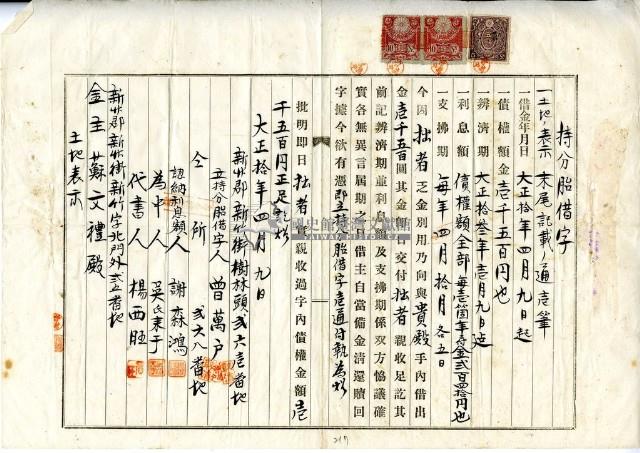 持分胎借字
一土地ノ表示 末尾記載ノ通壱筆
一借金年月日 大正拾年四月九日起
一債權額 金壱千五百円也
一辨濟期 大正拾叁年壱月九日迄
一利息額 債權額全部每壱箇年金貳百四拾円也
一支拂期 每年四月拾月各五日
今因拙者乏金別用乃向與貴殿手內借出
金壱千五百圓其金即日交付拙者親收足訖其
前記辨濟期並利息及支拂期係双方協議確
實各無異言屆期日借主自當備金清還贖回
字據今欲有憑即立持分胎借字壱通付執為炤
批明即日拙者實親收過字內債權金額壱
千五百円正足訖炤
大正拾年四月九日
新竹郡新竹街樹林頭貳六壱番地
立持分胎借字人 曾萬戶
仝所 貳六八番地
認納利息額人 謝森鴻
為中人 吳氏素于
代書人 楊西旺
新竹郡新竹街新竹字北門外貳五番地
金主 蘇文禮殿
土地表示
國史館臺灣文獻館
TAIWAN HISTORICA
217